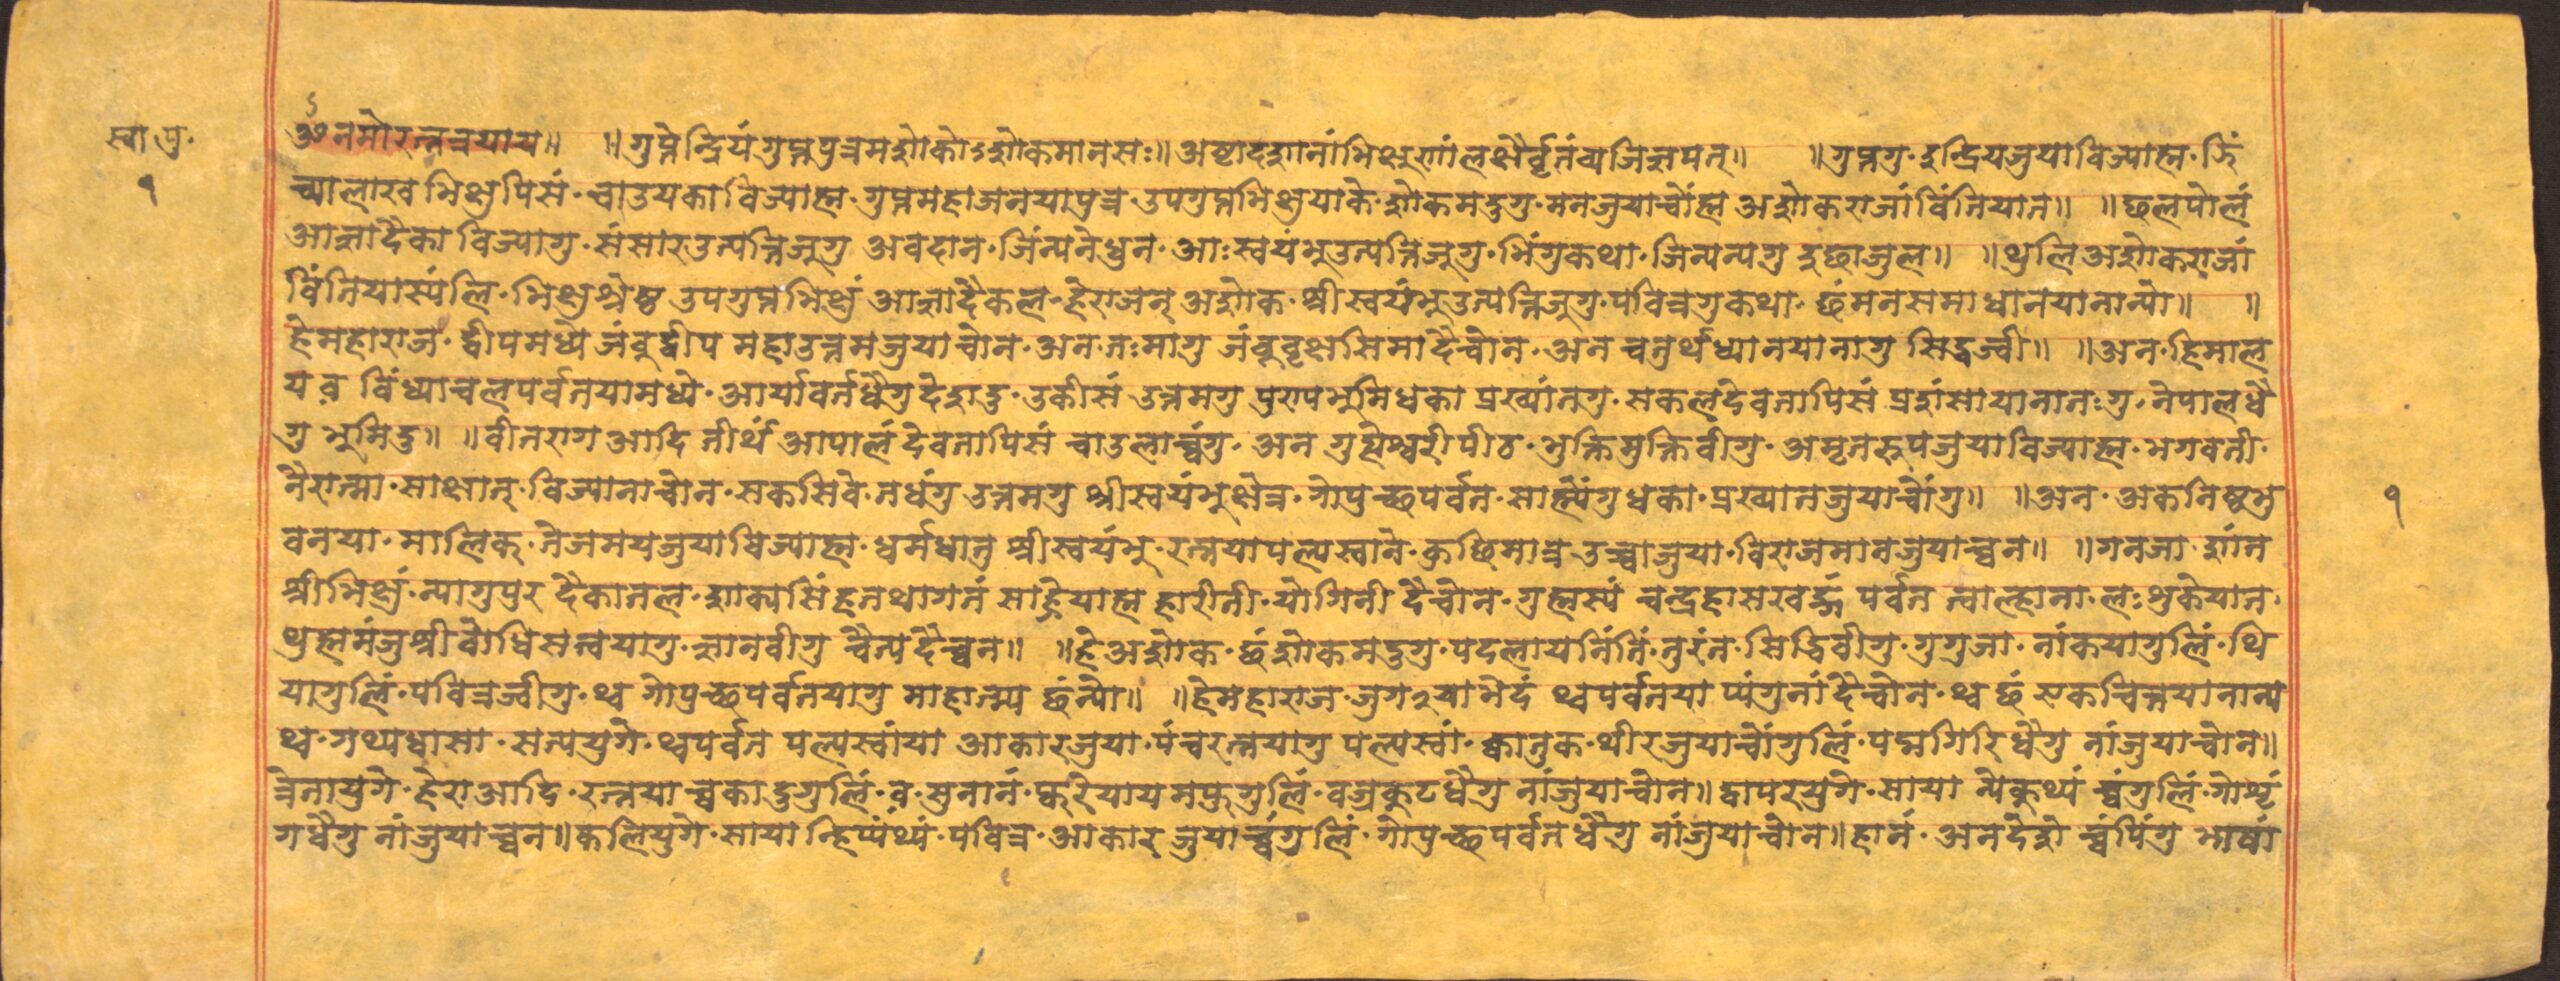 स्वा पु.
१
ॐ नमो रत्नत्रयाय॥ ॥गुप्तेन्द्रियं गुप्तपुत्रमशोकोऽशोकमानसः॥ अष्टादशानां भिक्षुणां लक्षैर्वृतं व्यजिज्ञपत्॥ ॥गुप्तगु· इन्द्रियजुयाविज्याह्म· झिं
च्यालाख भिक्षुपिसं· चाउयका विज्याह्म· गुप्तमहाजनयापुत्र· उपगुप्तभिक्षुयाके· शोकमदुगु· मनजुयाचोंह्म अशोकराजां विंतियात॥ ॥छलपोलं
आज्ञादैका विज्यागु· संसारउत्पत्तिजूगु अवदान· जिंन्यनेधुन· आः स्वयंभूउत्पत्तिजूगु· भिंगुकथा· जिन्यन्यगु इछाजुल॥ ॥थुलि अशोकराजां
विंतियास्यंलि· भिक्षुश्रेष्ठ उपगुप्तभिक्षुं आज्ञादैकल· हेराजन् अशोक· श्रीस्वयंभूउत्पत्तिजूगु· पवित्रगुकथा· छं मनसमाधानयानान्यो॥ ॥
हेमहाराज· द्वीपमध्ये जंबुद्वीप महाउत्तमजुयाचोन· अन तःमागु जंबूवृक्षसिमादैचोन· अन चतुर्थध्यानयानागु सिद्धज्वी॥ ॥अन· हिमाल
य व विंध्याचलपर्वतयामध्ये· आर्यावर्तधैगु देशदु· उकीसं उत्तमगु पुण्यभूमिधका प्रख्यातगु· सकलदेवतापिसं प्रशंसायानातःगु· नेपालधै
गु भूमिदु॥ ॥वीतराग आदि तीर्थ आपालं देवतापिसं चाउलाच्वंगु· अन गुह्येश्वरीपीठ· भुक्तिमुक्तिवीगु· अमृतरूपजुयाविज्याह्म· भगवती·
नैरात्मा· साक्षात् विज्यानाचोन· सकसिबे· तधंगु उत्तमगु श्रीस्वयंभूक्षेत्र· गोपुच्छपर्वत· साह्म्यंगुधका· प्रख्यातजुयाचोंगु॥ ॥अन· अकनिष्ठभु
वनया· मालिक् तेजमयजुयाविज्याह्म· धर्मधातु श्रीस्वयंभू· रत्नयापल्यस्वाने· कुछिमात्र उच्चाजुया· विराजमानजुयाच्वन॥ ॥गनजा शांत
श्रीभिक्षुं· न्यागुपुर दैकातल· शाक्यसिंहतथागतं साह्रेयाह्म हारीती· योगिनी दैचोन· गुह्मस्यं चन्द्रहासखड्गं पर्वत त्वाल्हाना· लः थुकेयात·
थुह्ममंजुश्रीबोधिसत्त्वयागु· ज्ञानवीगु चैत्यदैच्वन॥ ॥हे अशोक· छं शोकमदुगु· पदलायनिंतिं· तुरंत· सिद्धिवीगु· गुगुजा· नांकयागुलिं· थि
यागुलिं· पवित्रज्वीगु· थ्व गोपुच्छपर्वतयागु माहात्म्य छं न्यो॥ ॥हेमहाराज· जुग२याभेदं थ्वपर्वतया प्यंगुनां दैचोन· थ्व छं एकचित्तयानान्य
थ्व· गथ्यधासा· सत्ययुगे· थ्वपर्वत पल्यस्वांया आकारजुया· पंचरत्नयागु पल्यस्वां· क्वातुक· थीरजुयाचोंगुलिं· पद्मगिरिधैगु नांजुयाचोन॥
त्रेतायुगे· हेराआदि· रत्नयाच्वकादुगुलिं· व· सुनानं· फ्वरेयायमफुगुलिं· वज्रकुटधैगु नांजुयाचोन॥ द्वापरयुगे· साया न्येकुथ्यं च्वंगुलिं· गोशृं
गधैगु नांजुयाच्वन॥ कलियुगे· साया न्हिप्यंथ्यं· पवित्र· आकारजुयाच्वंगुलिं· गोपुच्छपर्वतधैगु नांजुयाचोन॥ हानं· अनदेशे च्वंपिंगु भाषां
१